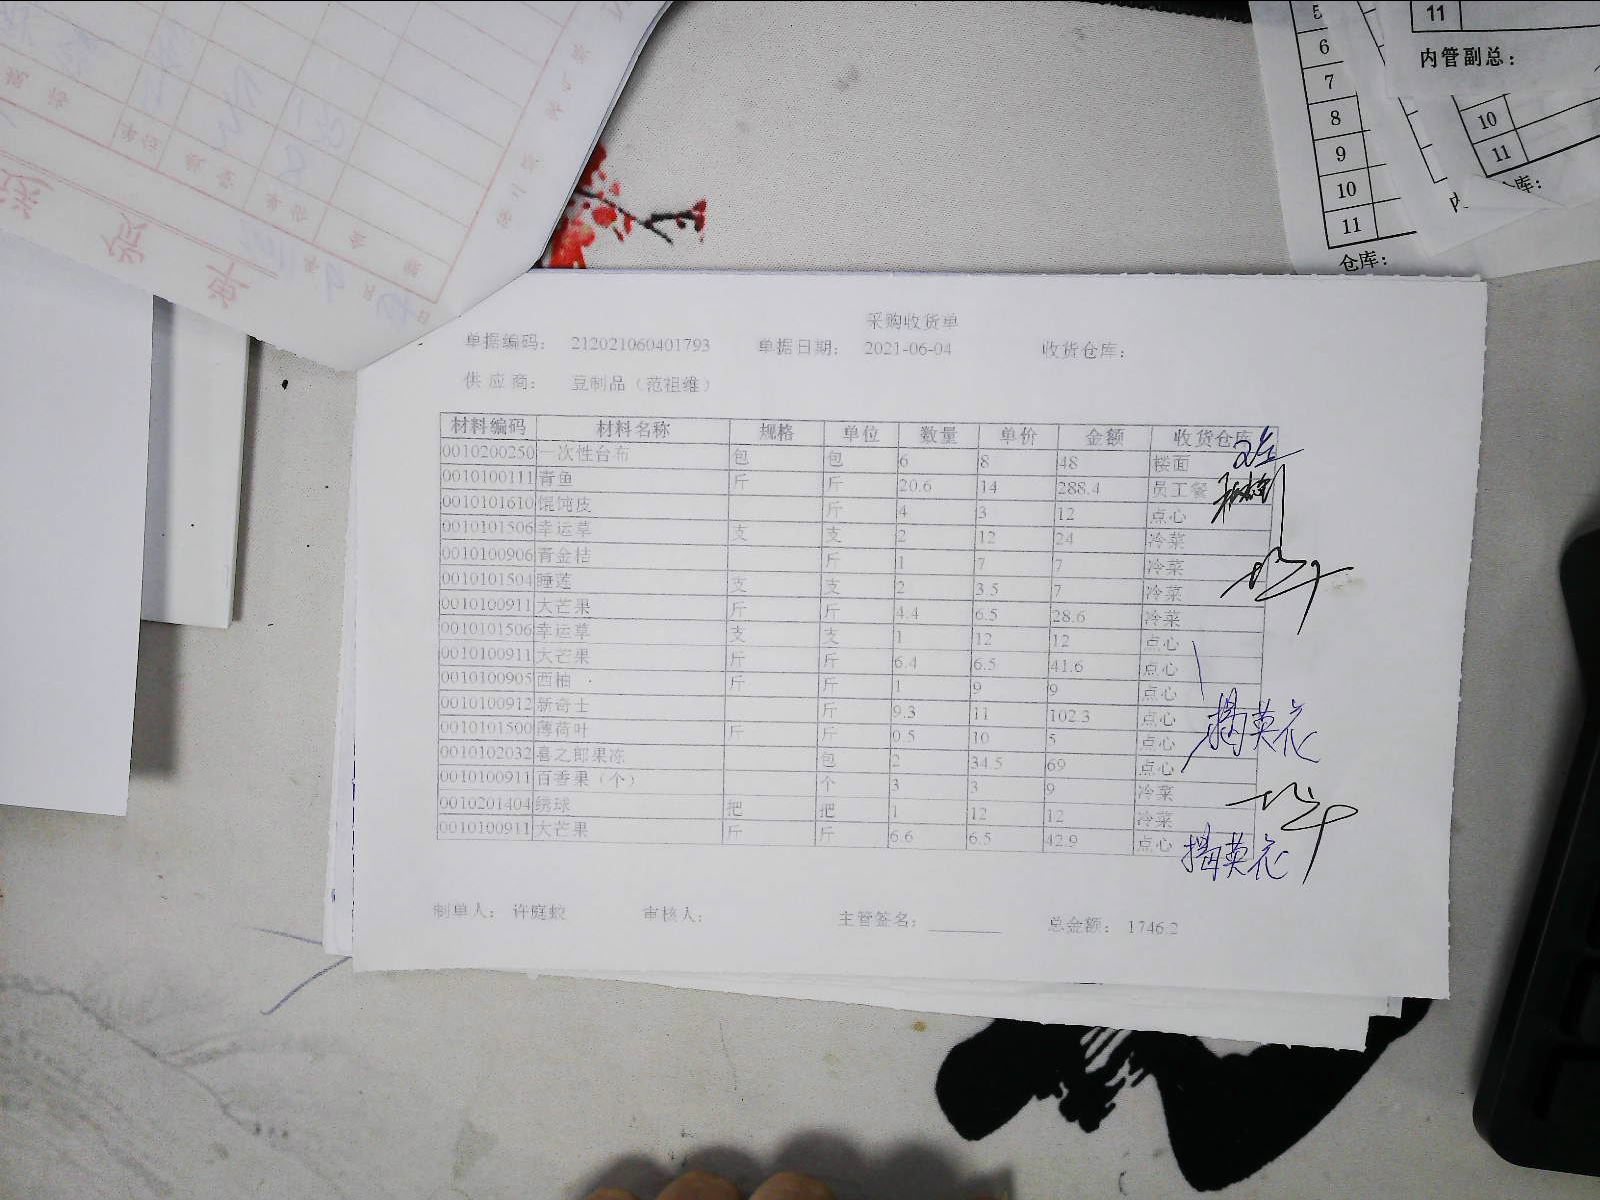 5
6
7
8
9
10
11
仓库:
11
内管副总:
10
11
库:
采购收货单
单据编码: 212021060401793 单据日期: 2021-06-04 收货仓库:
供应商: 豆制品(范祖维)
材料编码 材料名称 规格 单位 数量 单价 金额 收货仓库
0010200250 一次性台布 包 包 6 8 48 楼面
0010100111 青鱼 斤 斤 20.6 14 288.4 员工餐
0010101610 馄饨皮 斤 4 3 12 点心
0010101506 幸运草 支 支 2 12 24 冷菜
0010100906 青金桔 斤 1 7 7 冷菜
0010101504 睡莲 支 支 2 3.5 7 冷菜
0010100911 大芒果 斤 斤 4.4 6.5 28.6 冷菜
0010101506 幸运草 支 支 1 12 12 点心
0010100911 大芒果 斤 斤 6.4 6.5 41.6 点心
0010100905 西柚 斤 斤 1 9 9 点心
0010100912 新奇士 斤 9.3 11 102.3 点心
0010101500 薄荷叶 斤 斤 0.5 10 5 点心
0010102032 喜之郎果冻 包 2 34.5 69 点心
0010100911 百香果(个) 个 3 3 9 冷菜
0010201404 绣球 把 把 1 12 12 冷菜
0010100911 大芒果 斤 斤 6.6 6.5 42.9 点心
制单人: 许庭蛟 审核人: 主管签名: 总金额: 1746.2